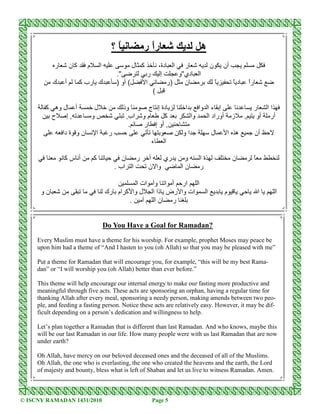 هل لديك شعاراً رمضانياً ؟
فكل مسلم يجب أن يكون لديه شعار في العبادة، نأخذ كمثال موسى عليه السلام فقد كان شعاره
العبادي"وعجلت إليك ربي لترضى".
ضع شعاراً عبادياً تحفيزياً لك برمضان مثل (رمضاني الأفضل) أو (سأعبدك يارب كما لم أعبدك من
قبل )
فهذا الشعار يساعدنا على إبقاء الدوافع بداخلنا لزيادة إنتاج صومنا وذلك من خلال خمسة أعمال وهي كفالة
أرملة أو يتيم. ملازمة أوراد الحمد والشكر بعد كل طعام وشراب. تبني شخص ومساعدته. إصلاح بين
متشاحنين. أو إفطار صائم.
لاحظ أن جميع هذه الأعمال سهلة جدا ولكن صعوبتها تأتي على حسب رغبة الإنسان وقوة دافعه على
العطاء
لنخطط معاً لرمضان مختلف لهذا السنه ومن يدري لعله آخر رمضان في حياتنا كم من أناس كانو معنا في
رمضان الماضي والان تحت التراب .
اللهم ارحم أمواتنا وأموات المسلمين
اللهم يا الله ياحي ياقيوم يابديع السموات والأرض ياذا الجلال والأكرام بارك لنا في ما تبقى من شعبان و
بلغنا رمضان اللهم آمين .
Do You Have a Goal for Ramadan?
Every Muslim must have a theme for his worship. For example, prophet Moses may peace be
upon him had a theme of “And I hasten to you (oh Allah) so that you may be pleased with me”
Put a theme for Ramadan that will encourage you, for example, “this will be my best Rama-
dan” or “I will worship you (oh Allah) better than ever before.”
This theme will help encourage our internal energy to make our fasting more productive and
meaningful through five acts. These acts are sponsoring an orphan, having a regular time for
thanking Allah after every meal, sponsoring a needy person, making amends between two peo-
ple, and feeding a fasting person. Notice these acts are relatively easy. However, it may be dif-
ficult depending on a person’s dedication and willingness to help.
Let’s plan together a Ramadan that is different than last Ramadan. And who knows, maybe this
will be our last Ramadan in our life. How many people were with us last Ramadan that are now
under earth?
Oh Allah, have mercy on our beloved deceased ones and the deceased of all of the Muslims.
Oh Allah, the one who is everlasting, the one who created the heavens and the earth, the Lord
of majesty and bounty, bless what is left of Shaban and let us live to witness Ramadan. Amen.
© ISCNY RAMADAN 1431/2010 Page 5